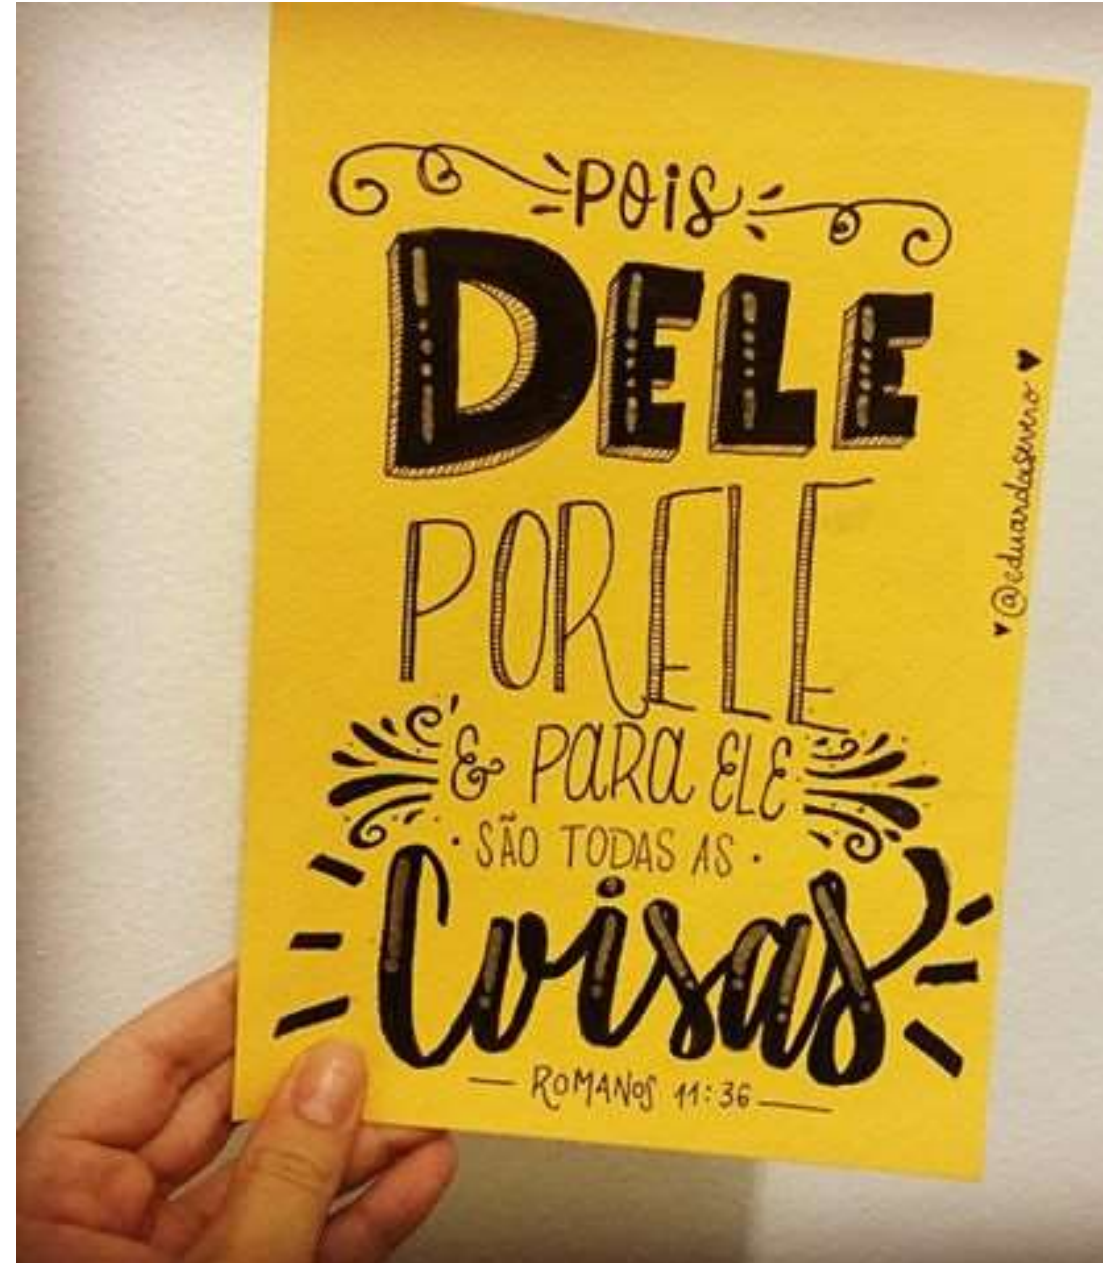 POIS
DELE
POR ELE
& PARA ELE
· SÃO TODAS AS ·
Coisas
— ROMANOS 11:36 —
♥ @eduardasevero ♥